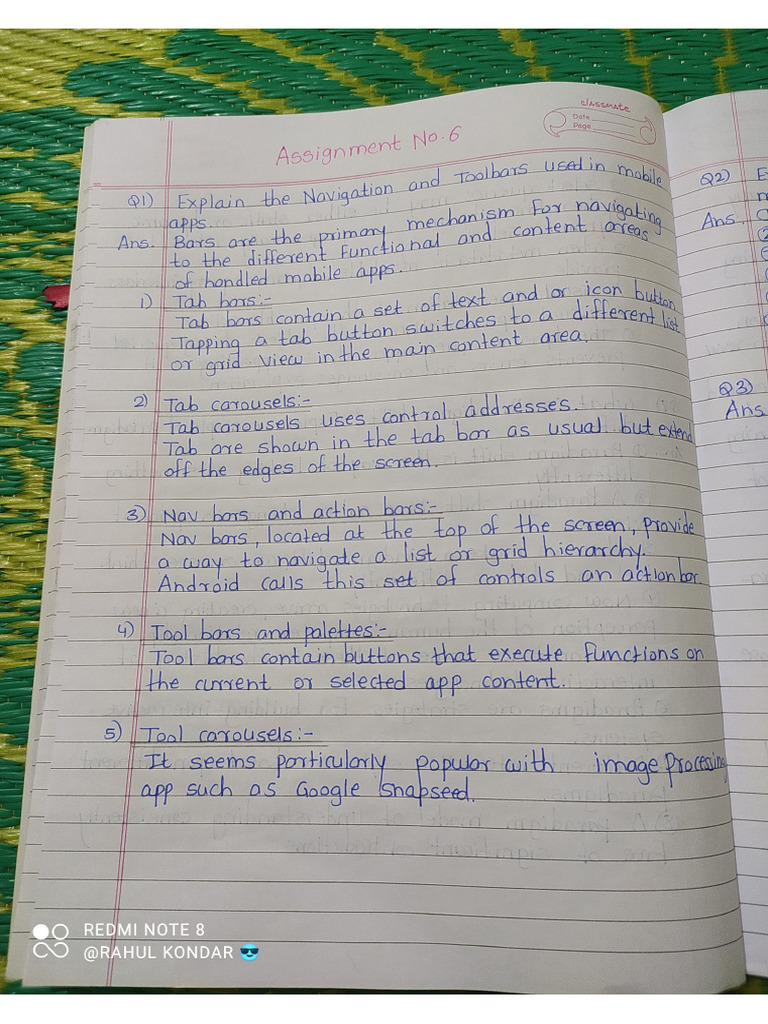 classmate
Date
Page
Assignment No. 6
Q1) Explain the Navigation and Toolbars used in mobile
apps.
Ans. Bars are the primary mechanism for navigating
to the different functional and content areas
of handled mobile apps.
1) Tab bars:-
Tab bars contain a set of text and or icon button
Tapping a tab button switches to a different list
or grid view in the main content area.
2) Tab carousels:-
Tab carousels uses control addresses.
Tab are shown in the tab bar as usual but extend
off the edges of the screen.
3) Nav bars and action bars:-
Nav bars, located at the top of the screen, provide
a way to navigate a list or grid hierarchy.
Android calls this set of controls an action bar.
4) Tool bars and palettes:-
Tool bars contain buttons that execute functions on
the current or selected app content.
5) Tool carousels:-
It seems particularly popular with image Procesing
app such as Google Snapseed.
Q2) E
Ans.
Q3)
Ans
REDMI NOTE 8
@RAHUL KONDAR 😎